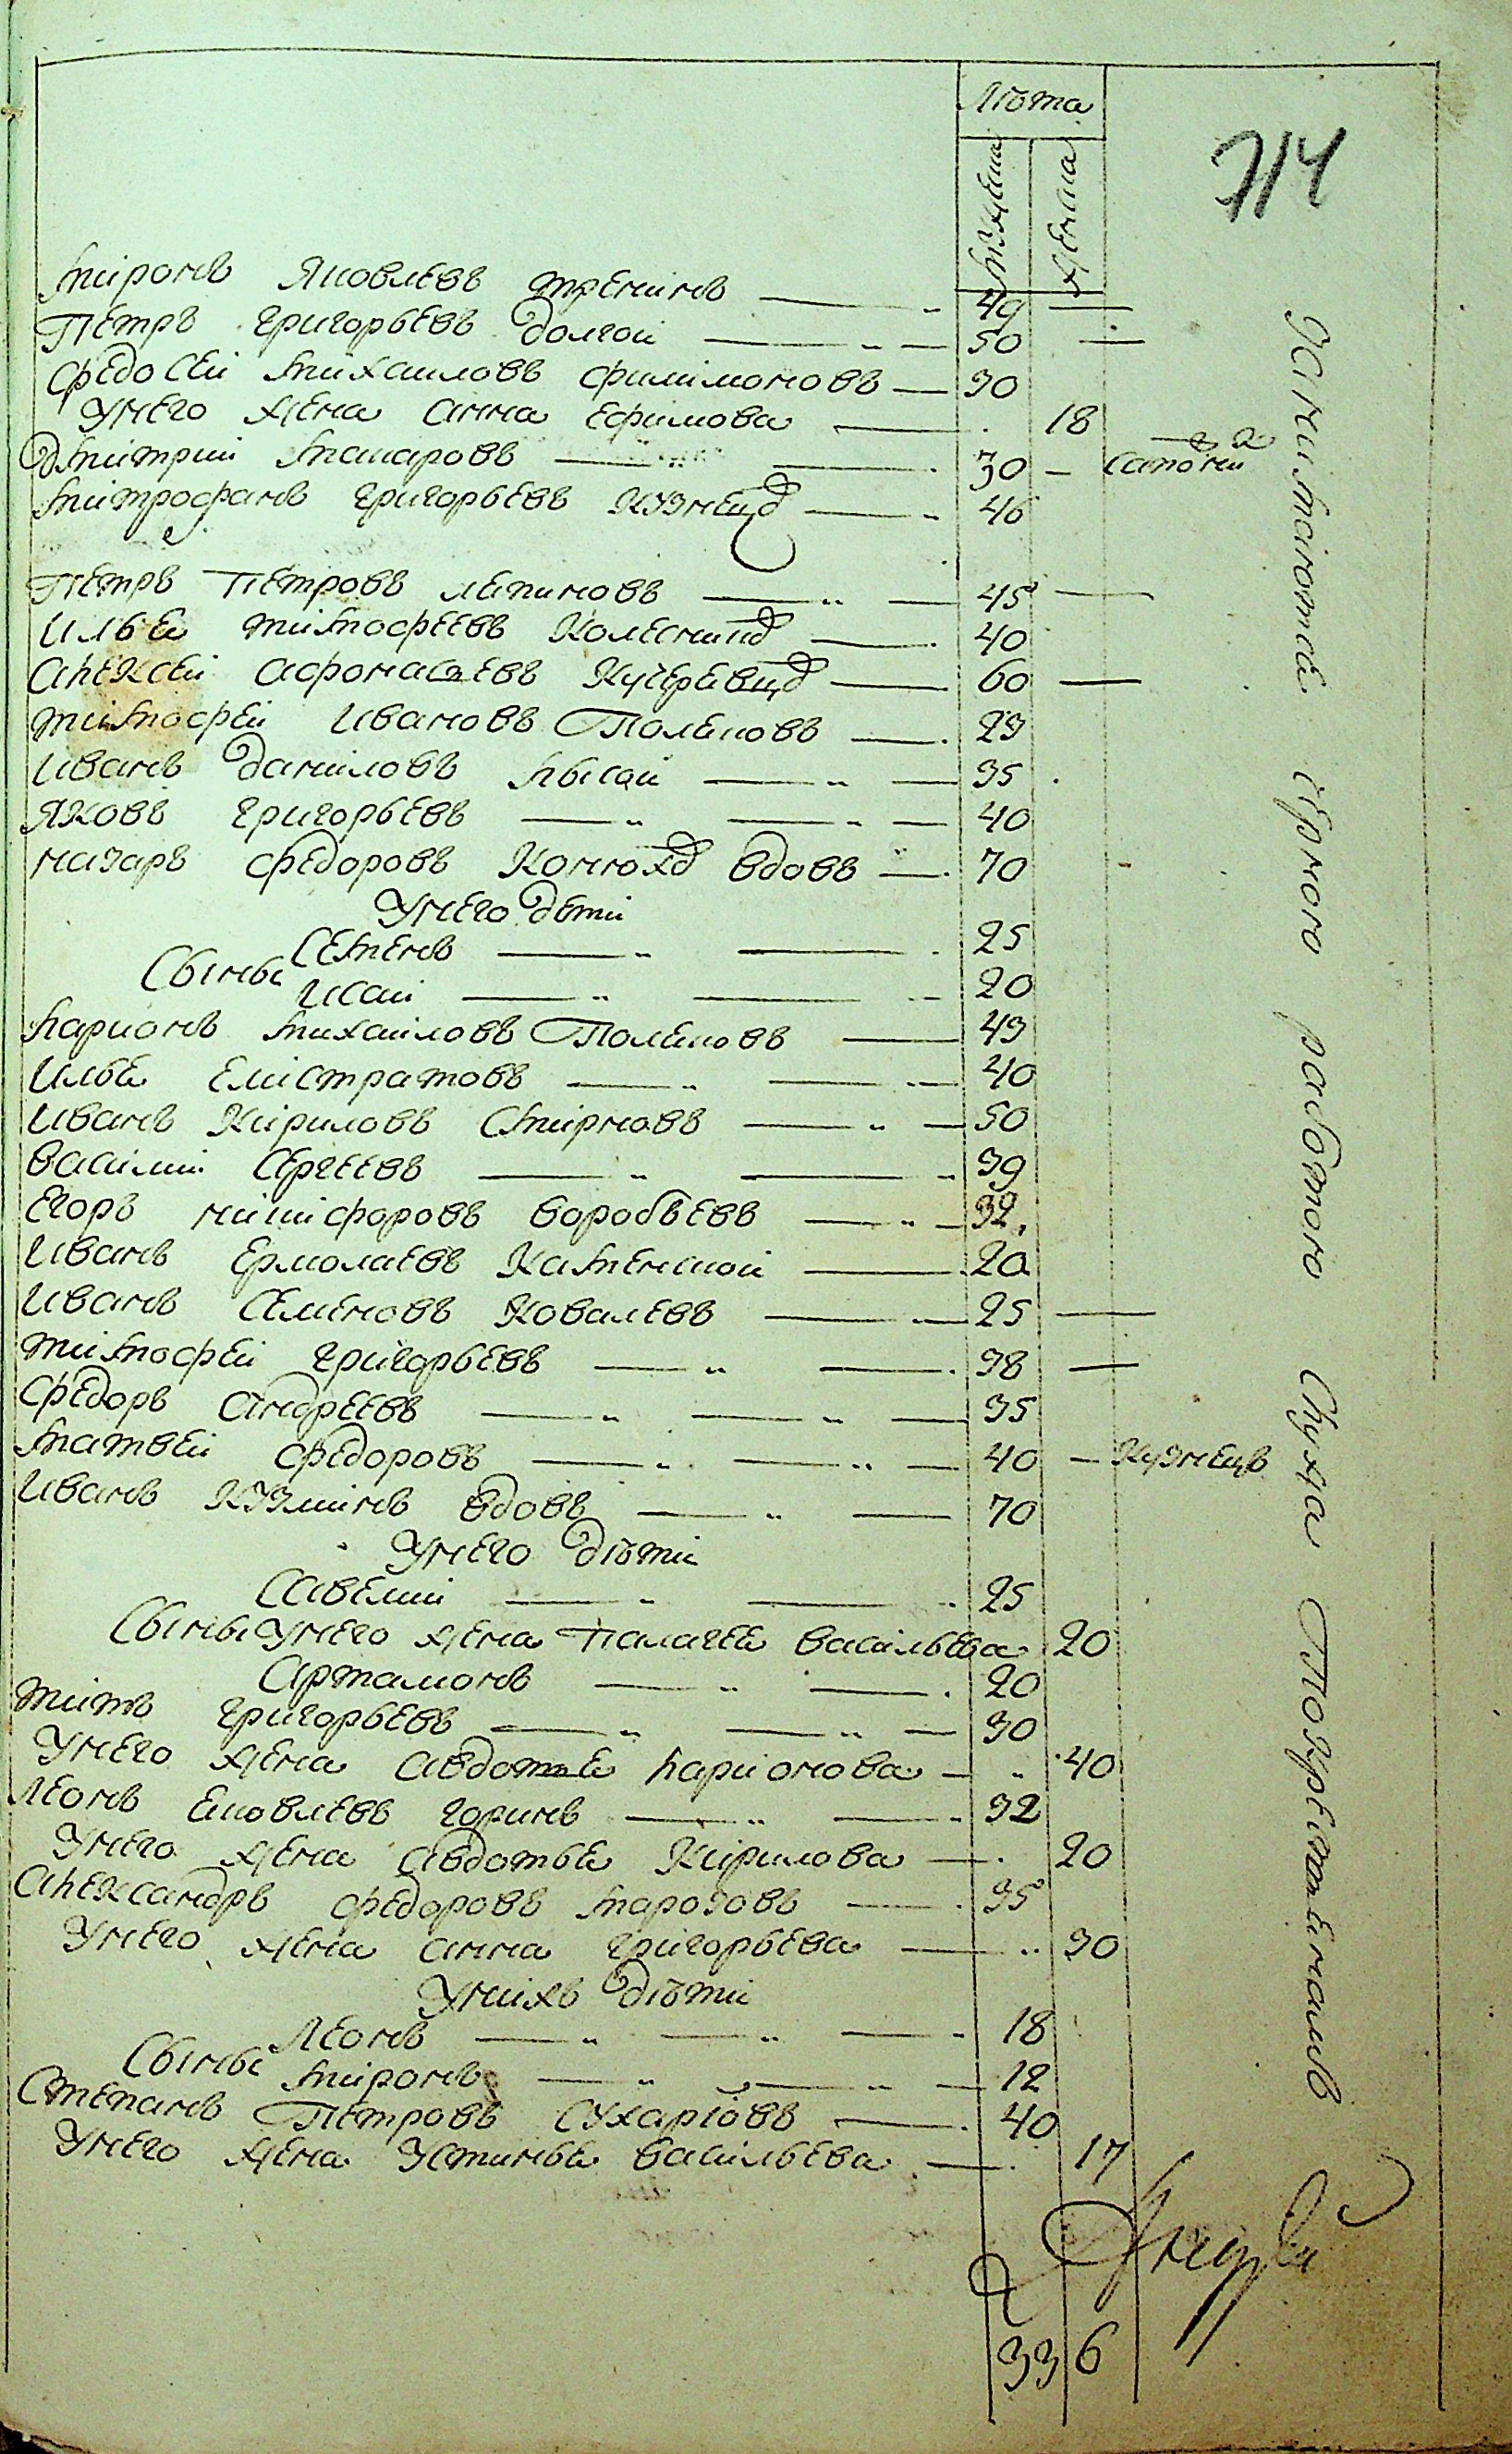 Лѣта
714
мужеска
женска
Миронъ Яковлевъ тренинъ 49
Петръ григорьевъ долгой 50
Федосей Михаиловъ филимоновъ 30
Унего жена анна ефимова 18
Дмитрий Макаровъ 30
Митрофанъ григорьевъ Кузнецъ 46
Петръ Петровъ лапиновъ 45
Илья тимофеевъ Колесникъ 40
Алексей афонасьевъ 60
тимофей Ивановъ Поляковъ 23
Иванъ даниловъ лысой 35
Яковъ григорьевъ 40
назаръ федоровъ Конюхъ вдовъ 70
Унего дети
Сыны
Семенъ 25
Исай 20
Ларионъ Михаиловъ Поляковъ 43
Илья елистратовъ 40
Иванъ Кириловъ Смирновъ 50
Василий Сергеевъ 39
Егоръ никифоровъ воробьевъ 32
Иванъ ермолаевъ Каменской 20
Иванъ Семеновъ Ковалевъ 25
тимофей григорьевъ 38
федоръ андреевъ 35
Матвей федоровъ 40 Кузнецъ
Иванъ Кузминъ вдовъ 70
Унего дѣти
Савелий 25
Сыны Унего жена Палагея васильева 20
Артамонъ 20
титъ григорьевъ 30
Унего жена авдотья Ларионова 40
Леонъ яковлевъ горинъ 32
Унего жена авдотья Кирилова 20
Александръ федоровъ Марозовъ 35
Унего жена анна григорьева 30
Унихъ дѣти
Сыны
Леонъ 18
Миронъ 12
Степанъ Петровъ Сухаріовъ 40
Унего жена Устинья васильева 17
33 6
черного работного